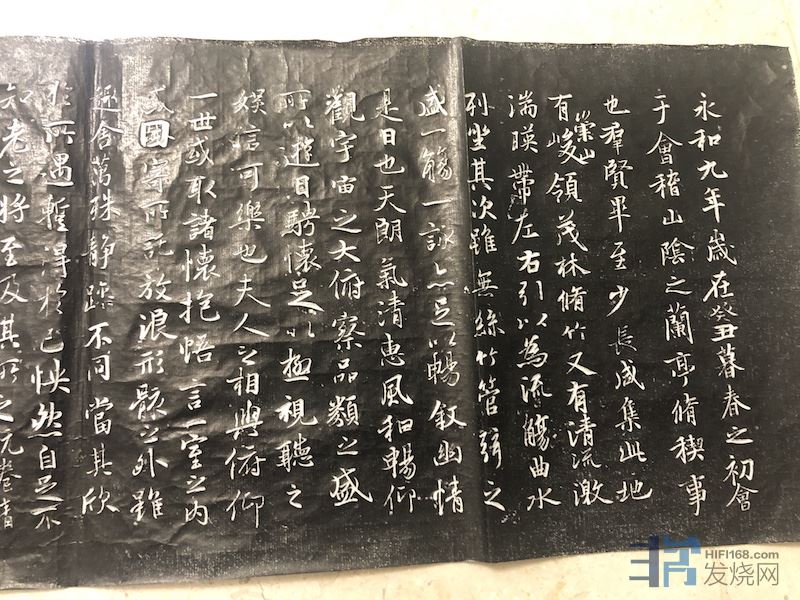 永和九年歲在癸丑暮春之初會
于會稽山陰之蘭亭脩稧事
也羣賢畢至少長咸集此地
有崇山峻領茂林脩竹又有清流激
湍暎帶左右引以為流觴曲水
列坐其次雖無絲竹管弦之
盛一觴一詠亦足以暢敘幽情
是日也天朗氣清惠風和暢仰
觀宇宙之大俯察品類之盛
所以遊目騁懷足以極視聽之
娛信可樂也夫人之相與俯仰
一世或取諸懷抱悟言一室之內
或因寄所託放浪形骸之外雖
趣舍萬殊靜躁不同當其欣
於所遇蹔得於己怏然自足不
知老之將至及其所之
HIFI168.com
发烧网